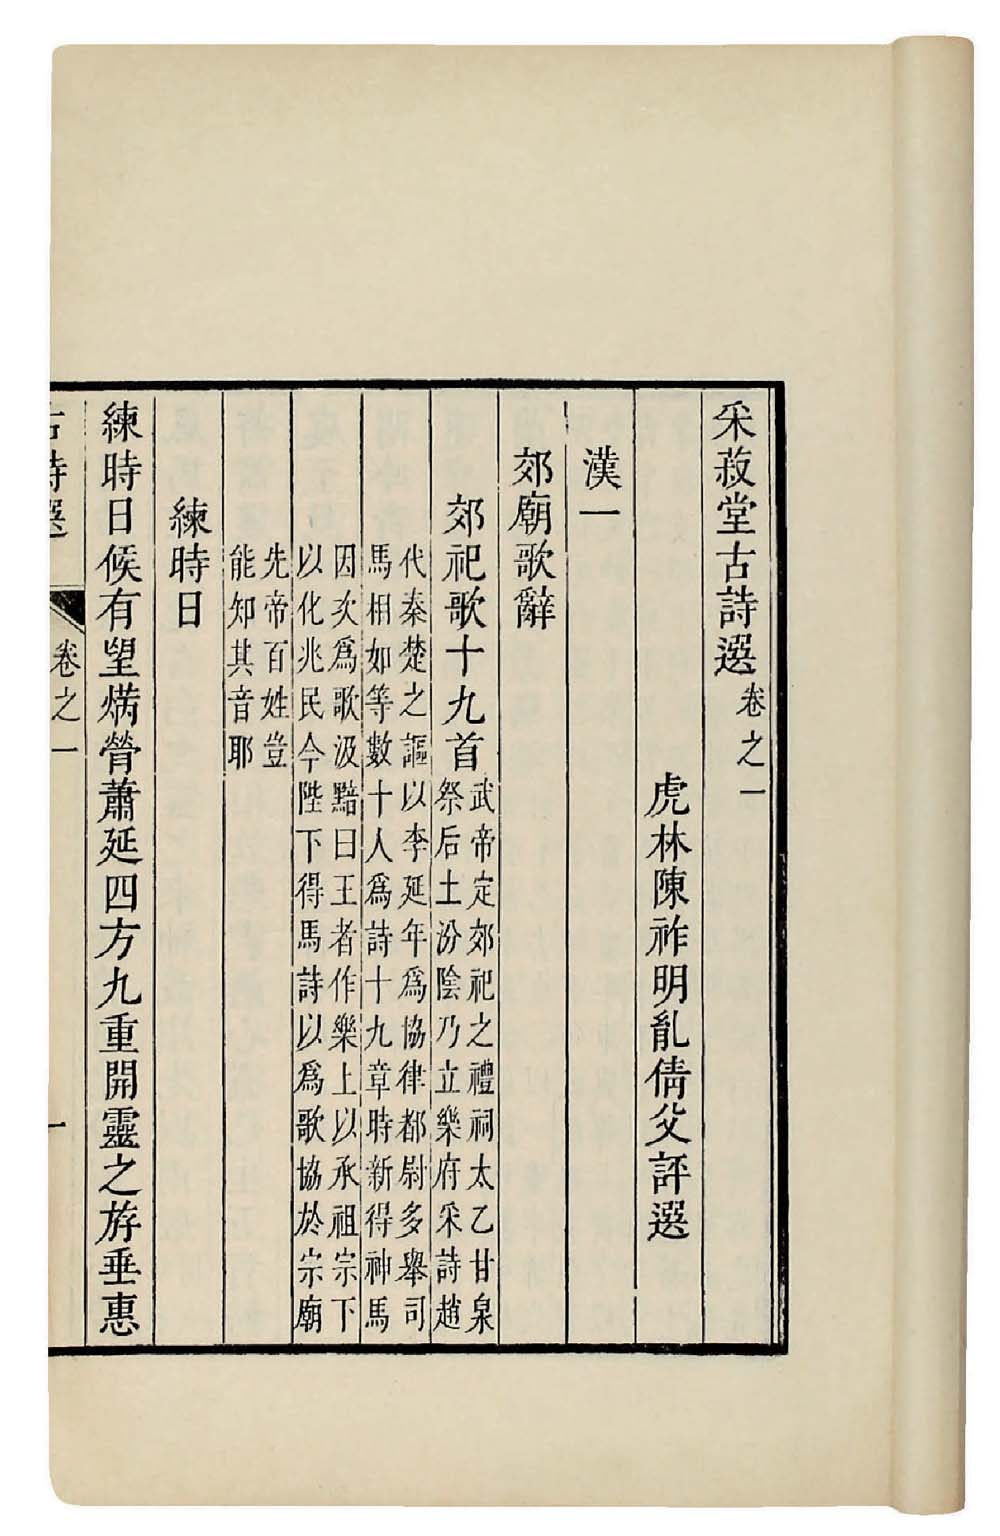 采菽堂古詩選卷之一
虎林陳祚明胤倩父評選
漢一
郊廟歌辭
郊祀歌十九首
武帝定郊祀之禮祠太乙甘泉
祭后土汾陰乃立樂府采詩趙
代秦楚之謳以李延年爲協律都尉多舉司
馬相如等數十人爲詩十九章時新得神馬
因次爲歌汲黯曰王者作樂上以承祖宗下
以化兆民今陛下得馬詩以爲歌協於宗廟
先帝百姓豈
能知其音耶
練時日
練時日候有望焫膋蕭延四方九重開靈之斿垂惠
古詩選
卷之一
一